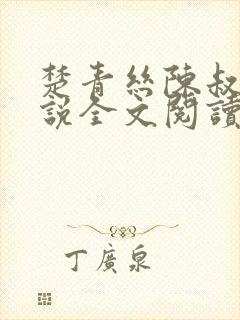 楚青絲陳叔
說全文閱讀
丁廣泉